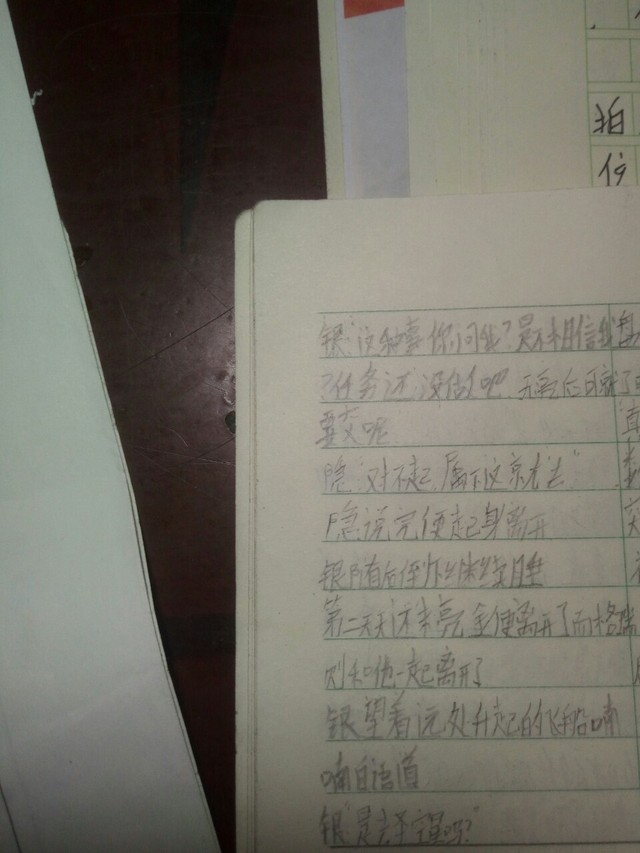 拍
银"这种事你问我?是不相信我
?任务还没做吧 五天后可就了
要交呢
隐"对不起,属下这就去"
隐说完便起身离开
银随后倒外继续睡
第二天天还未亮金便离开了而格瑞
则和他一起离开了
银望着远处升起的飞船喃
喃自语道
银"是去 吗?"